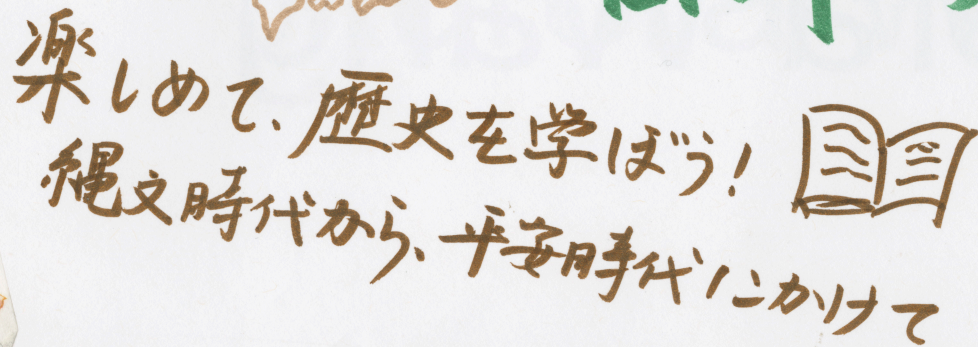 楽しめて、歴史を学ぼう!
縄文時代から、平安時代にかけて